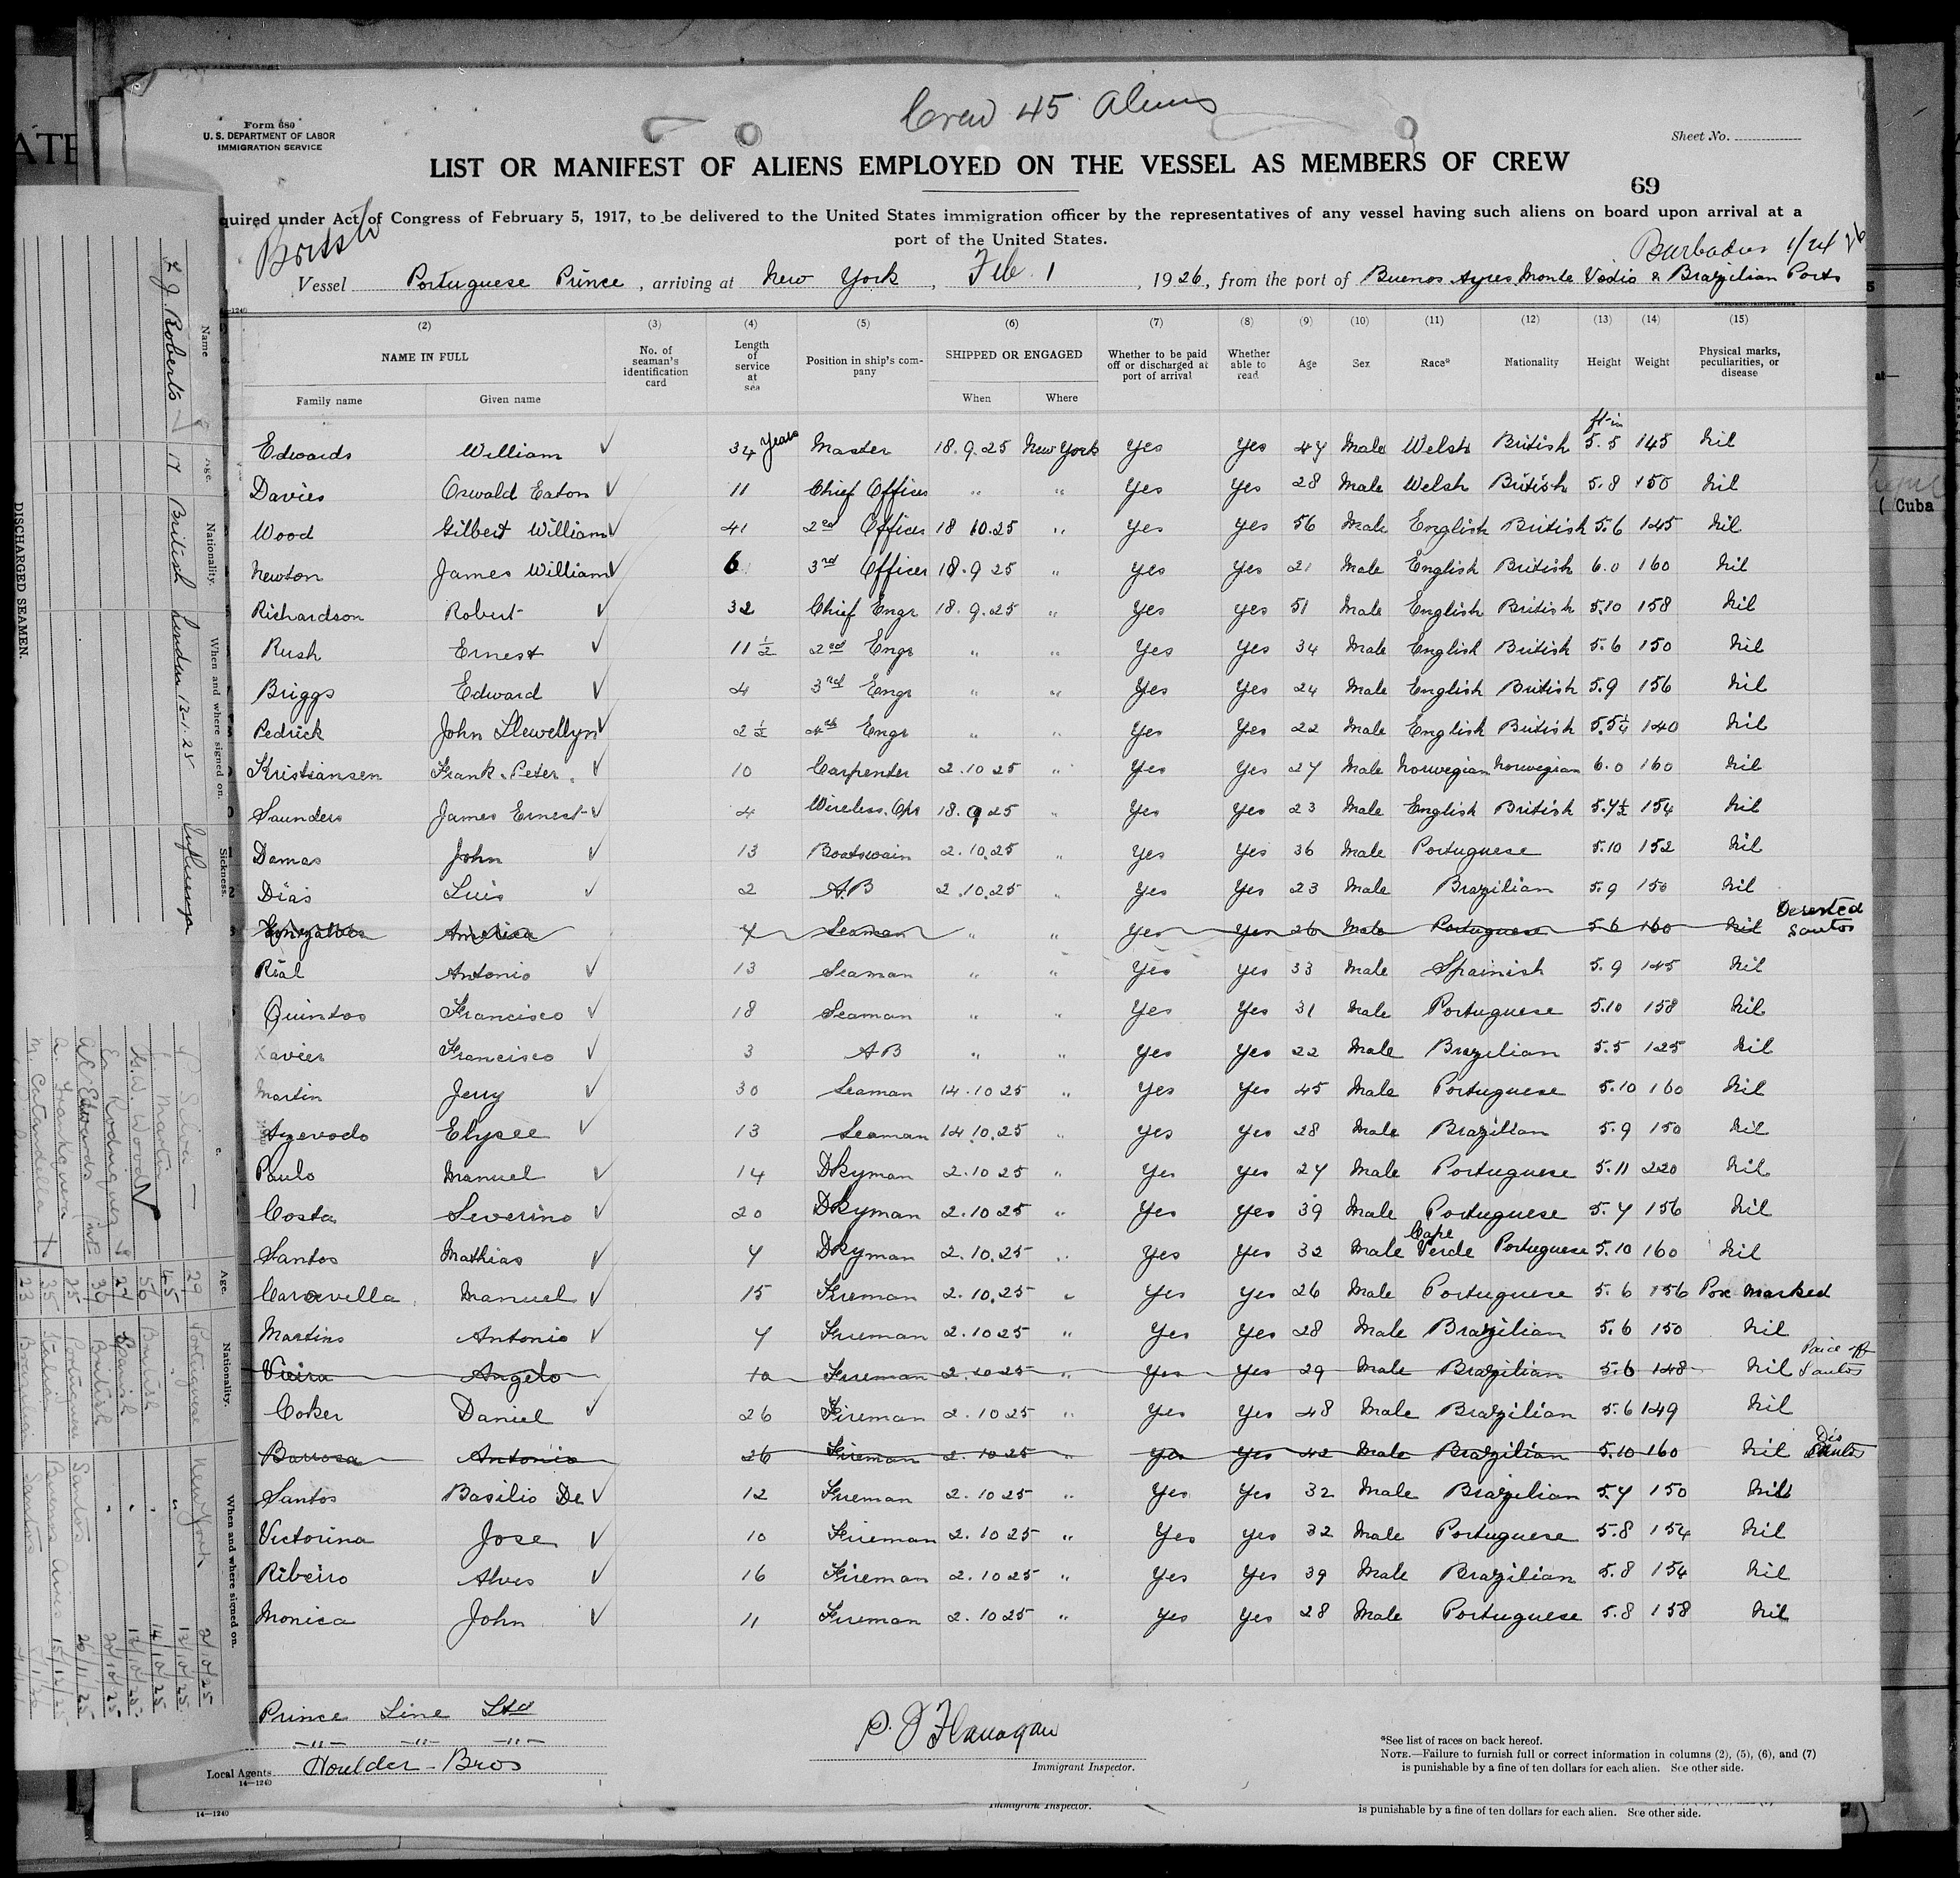 Crew 45 Aliens
Form 680
U. S. DEPARTMENT OF LABOR
IMMIGRATION SERVICE
Sheet No.
LIST OR MANIFEST OF ALIENS EMPLOYED ON THE VESSEL AS MEMBERS OF CREW
69
quired under Act of Congress of February 5, 1917, to be delivered to the United States immigration officer by the representatives of any vessel having such aliens on board upon arrival at a
port of the United States.
Barbados 1/24 26
Vessel Portuguese Prince, arriving at New York, Feb. 1, 1926, from the port of Buenos Ayres, Monte Vedio & Brazilian Ports
(2) (3) (4) (5) (6) (7) (8) (9) (10) (11) (12) (13) (14) (15)
NAME IN FULL No. of seaman's identification card Length of service at sea Position in ship's company SHIPPED OR ENGAGED Whether to be paid off or discharged at port of arrival Whether able to read Age Sex Race* Nationality Height Weight Physical marks, peculiarities, or disease
Family name Given name When Where
Edwards William ✓ 34 years Master 18.9.25 New York Yes Yes 47 Male Welsh British ft-in 5.5 145 Nil
Davies Oswald Eaton ✓ 11 Chief Officer " " Yes Yes 28 Male Welsh British 5.8 150 Nil
Wood Gilbert William ✓ 41 2nd Officer 18 10.25 " Yes Yes 56 Male English British 5.6 145 Nil
Newton James William ✓ 6 3rd Officer 18.9 25 " Yes Yes 21 Male English British 6.0 160 Nil
Richardson Robert ✓ 32 Chief Engr 18.9.25 " Yes Yes 51 Male English British 5.10 158 Nil
Rush Ernest ✓ 11 1/2 2nd Engr " " Yes Yes 34 Male English British 5.6 150 Nil
Briggs Edward ✓ 4 3rd Engr " " Yes Yes 24 Male English British 5.9 156 Nil
Pedrick John Llewellyn ✓ 2 1/2 4th Engr " " Yes Yes 22 Male English British 5.5 1/4 140 Nil
Kristiansen Frank Peter ✓ 10 Carpenter 2.10 25 " Yes Yes 27 Male Norwegian Norwegian 6.0 160 Nil
Saunders James Ernest ✓ 4 Wireless Opr 18.9 25 " Yes Yes 23 Male English British 5.7 1/2 154 Nil
Damas John ✓ 13 Boatswain 2.10.25 " Yes Yes 36 Male Portuguese 5.10 152 Nil
Dias Luis ✓ 2 A.B 2.10.25 " Yes Yes 23 Male Brazilian 5.9 150 Nil
7 Seaman " " Yes Yes 26 Male Portuguese 5.6 160 Nil Deserted Santos
Rial Antonio ✓ 13 Seaman " " Yes Yes 33 Male Spainish 5.9 145 Nil
Quintos Francisco ✓ 18 Seaman " " Yes Yes 31 Male Portuguese 5.10 158 Nil
Xavier Francisco ✓ 3 AB " " Yes Yes 22 Male Brazilian 5.5 125 Nil
Martin Jerry ✓ 30 Seaman 14.10 25 " Yes Yes 45 Male Portuguese 5.10 160 Nil
Azevodo Elysee ✓ 13 Seaman 14.10.25 " Yes Yes 28 Male Brazilian 5.9 150 Nil
Paulo Manuel ✓ 14 Dkyman 2.10 25 " Yes Yes 27 Male Portuguese 5.11 220 Nil
Costa Severino ✓ 20 Dkyman 2.10 25 " Yes Yes 39 Male Portuguese 5.7 156 Nil
Santos Mathias ✓ 7 Dkyman 2.10.25 " Yes Yes 32 Male Cape Verde Portuguese 5.10 160 Nil
Caravella Manuel ✓ 15 Fireman 2.10.25 " Yes Yes 26 Male Portuguese 5.6 156 Pox Marked
Martins Antonio ✓ 7 Fireman 2.10 25 " Yes Yes 28 Male Brazilian 5.6 150 Nil
Vieira Angelo 10 Fireman 2.10 25 " Yes Yes 29 Male Brazilian 5.6 148 Nil Paid off Santos
Coker Daniel ✓ 26 Fireman 2.10 25 " Yes Yes 48 Male Brazilian 5.6 149 Nil
Barrosa Antonio 26 Fireman 2.10 25 " Yes Yes 42 Male Brazilian 5.10 160 Nil Dis Santos
Santos Basilio De ✓ 12 Fireman 2.10 25 " Yes Yes 32 Male Brazilian 5.7 150 Nil
Victorina Jose ✓ 10 Fireman 2.10 25 " Yes Yes 32 Male Portuguese 5.8 154 Nil
Ribeiro Alves ✓ 16 Fireman 2.10 25 " Yes Yes 39 Male Brazilian 5.8 154 Nil
Monica John ✓ 11 Fireman 2.10 25 " Yes Yes 28 Male Portuguese 5.8 158 Nil
Prince Line Ltd
-"- -"- -"-
Local Agents Houlder Bros
14—1240
P. J. Flanagan
Immigrant Inspector.
*See list of races on back hereof.
NOTE.—Failure to furnish full or correct information in columns (2), (5), (6), and (7)
is punishable by a fine of ten dollars for each alien. See other side.
14—1240
Immigrant Inspector.
is punishable by a fine of ten dollars for each alien. See other side.
DISCHARGED SEAMEN.
Name Age. Nationality. When and where signed on. Sickness.
J. Roberts 17 British London 13.1.25 Influenza
Age. Nationality. When and where signed on.
Silva 29 Portuguese New York 2/10/25
Martin 45 " " 13/10/25
G. W. Wood 56 British " 14/10/25
Rodriguez Spanish
Edwards British
Portuguese Santos 26/11/25
Italian Buenos Aires 15/12/25
M. Catandella 23
( Cuba